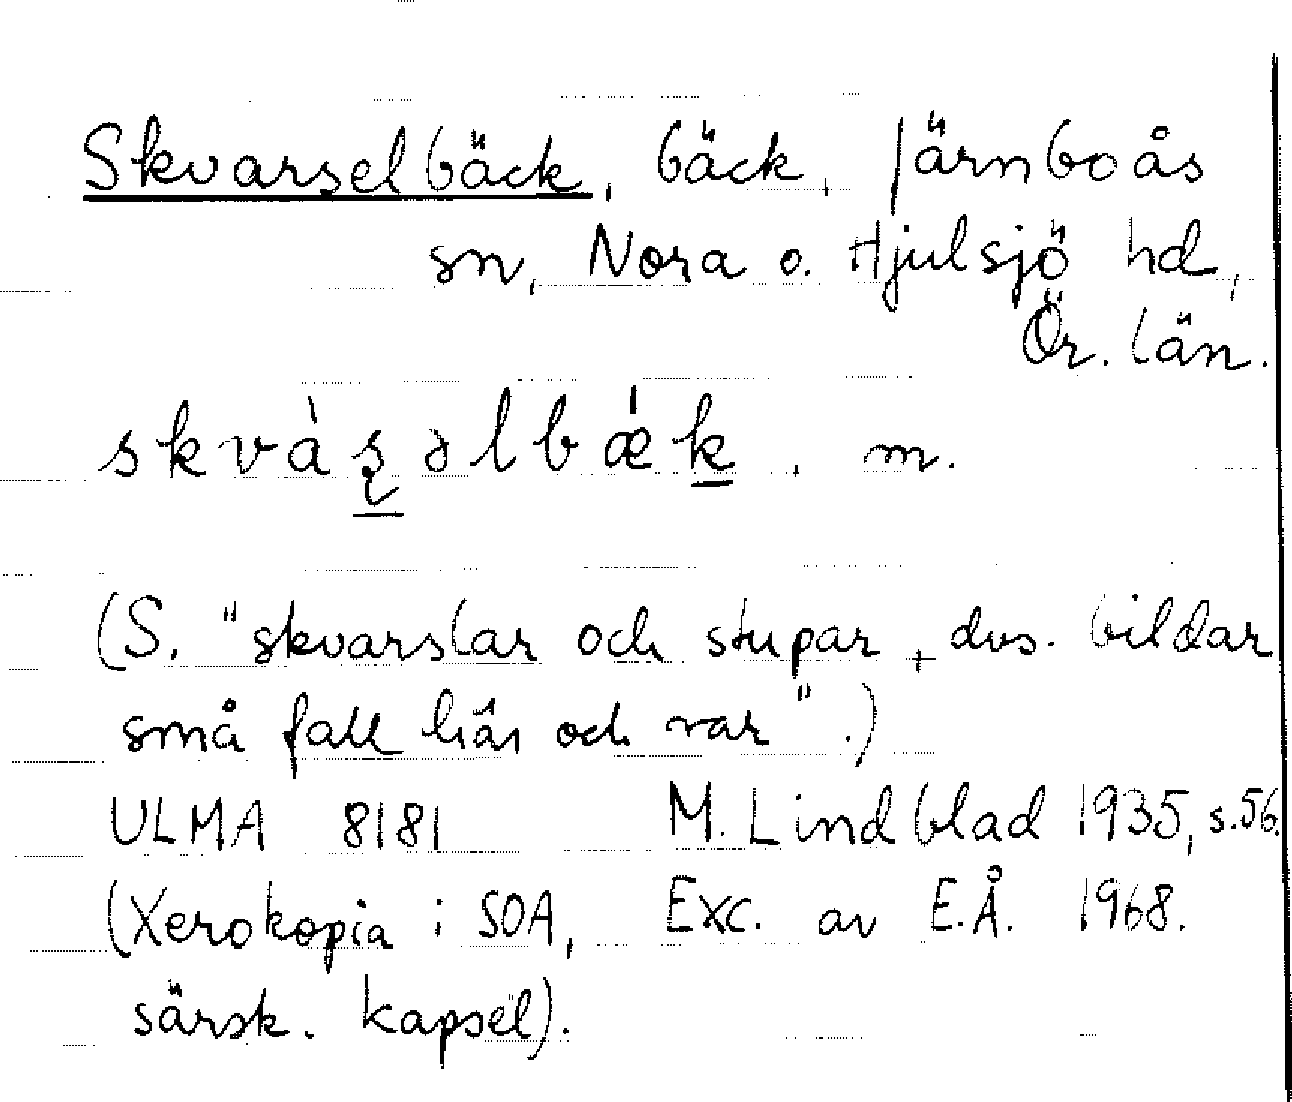 Skvarselbäck, bäck, Järnboås
sn, Nora o. Hjulsjö hd,
Ör. län.
skvàʂəlbǽk, m.
(S. "skvarslar och stupar, dvs. bildar
små fall här och var".)
ULMA 8181 M. Lindblad 1935, s.56.
(Xerokopia i SOA, Exc. av E.Å. 1968.
särsk. kapsel).